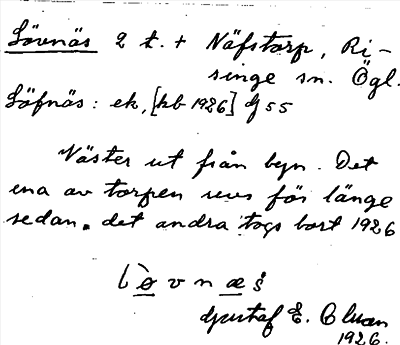 Lövnäs 2 t. + Näfstorp, Ri-
singe sn. Ögl.
Löfnäs: ek, [hb 1926] Gj 55
Väster ut från byn. Det
ena av torpen revs för länge
sedan. det andra togs bort 1926
Gustaf E.
1926.